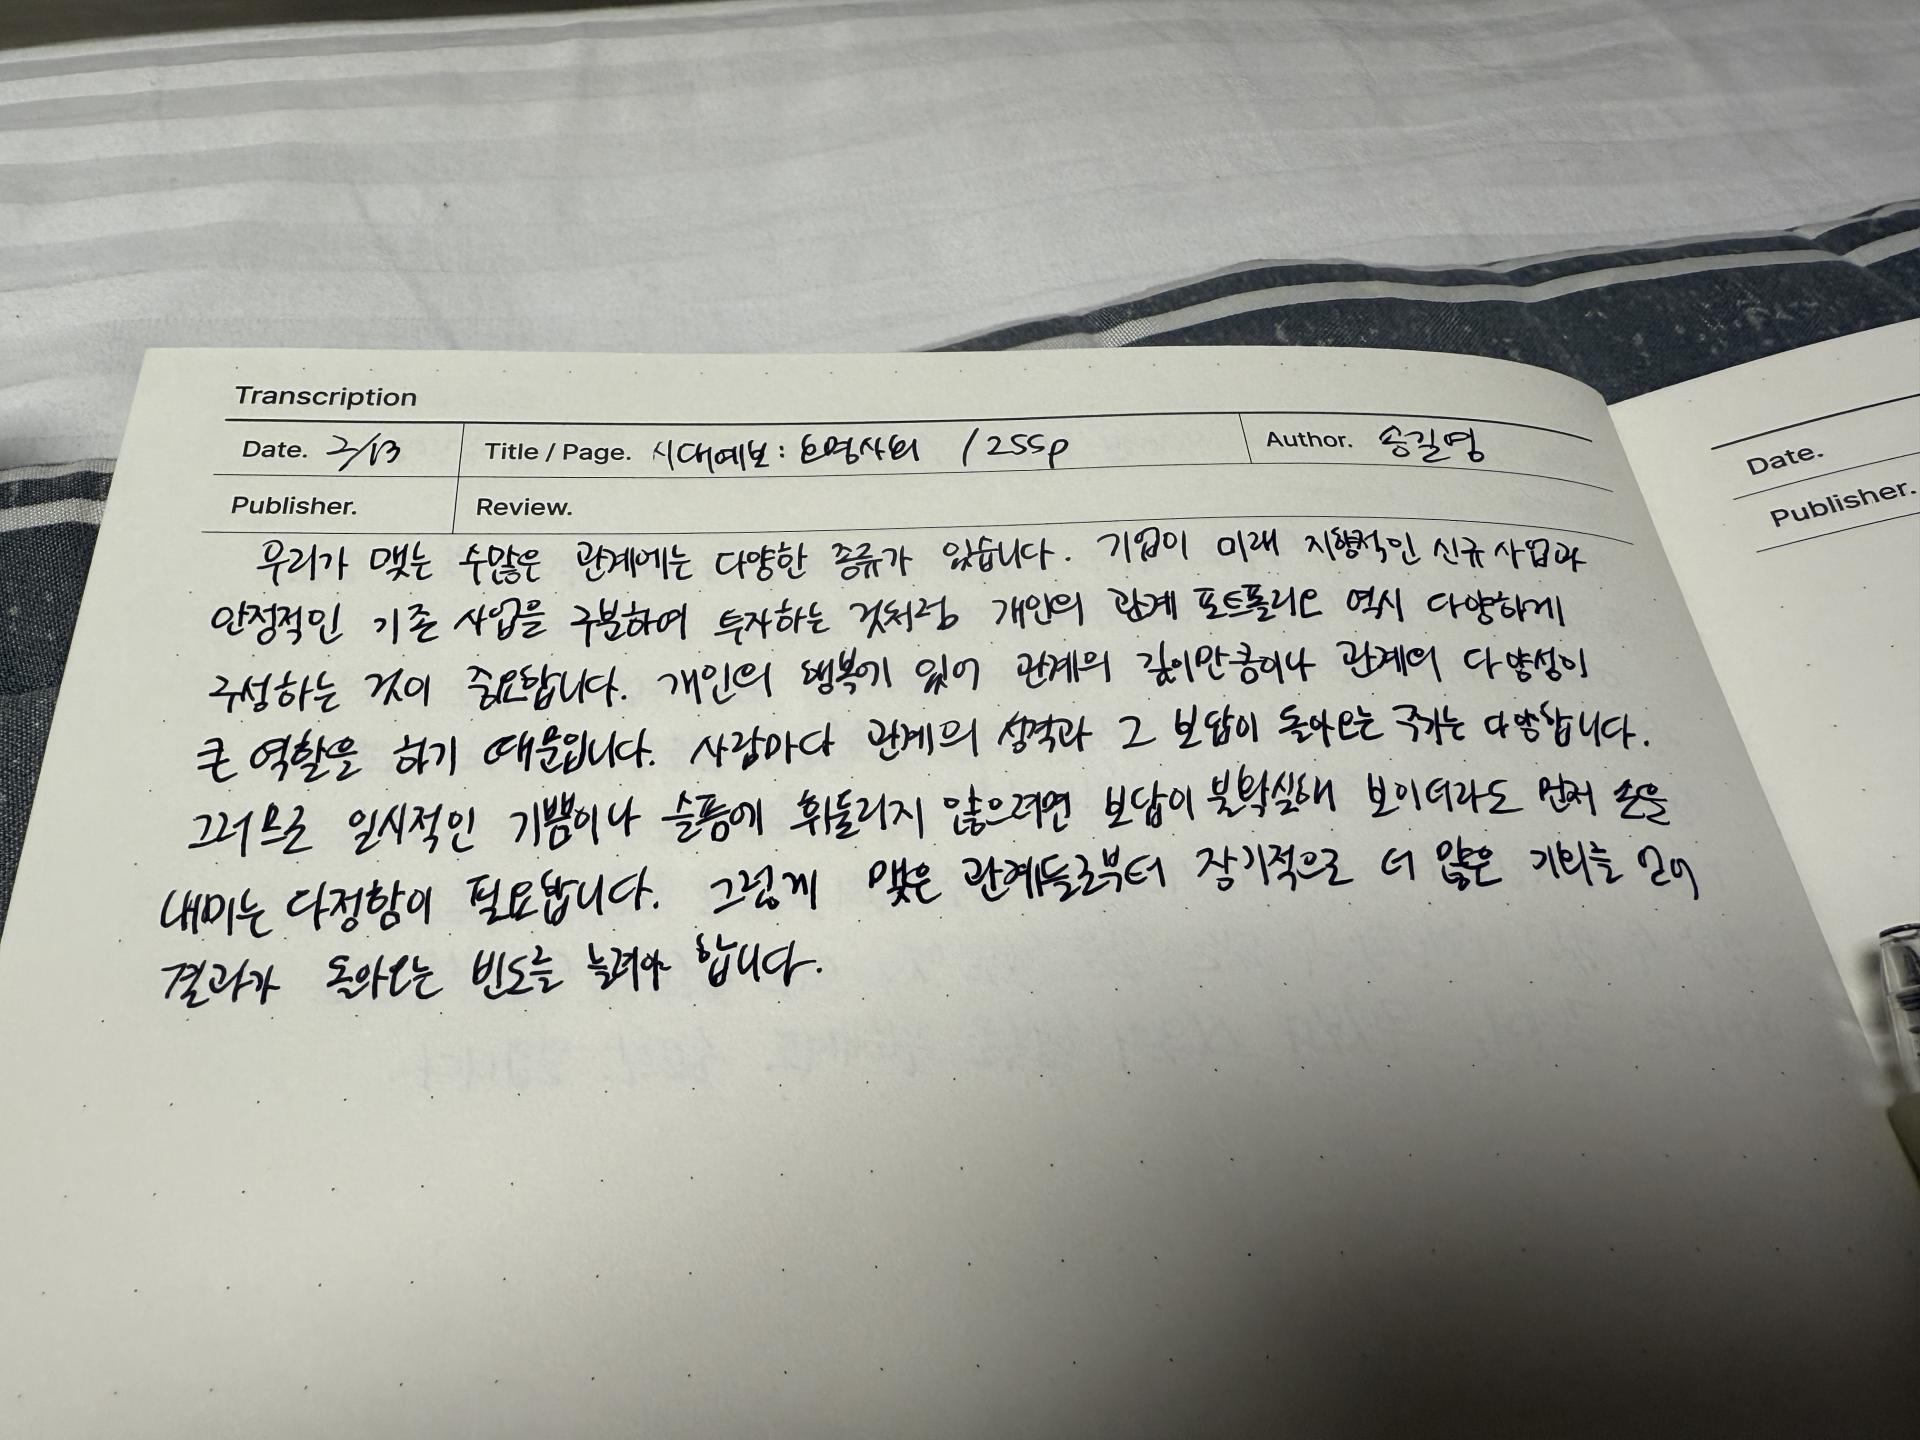 Transcription
Date. 2/13 Title / Page. 시대예보: 호명사회 / 255p Author. 송길영
Publisher. Review.
우리가 맺는 수많은 관계에는 다양한 종류가 있습니다. 기업이 미래 지향적인 신규 사업과
안정적인 기존 사업을 구분하여 투자하는 것처럼 개인의 관계 포트폴리오 역시 다양하게
구성하는 것이 중요합니다. 개인의 행복에 있어 관계의 깊이만큼이나 관계의 다양성이
큰 역할을 하기 때문입니다. 사람마다 관계의 성격과 그 보답이 돌아오는 주기는 다양합니다.
그러므로 일시적인 기쁨이나 슬픔에 휘둘리지 않으려면 보답이 불확실해 보이더라도 먼저 손을
내미는 다정함이 필요합니다. 그렇게 맺은 관계들로부터 장기적으로 더 많은 기회를 얻어
결과가 돌아오는 빈도를 늘려야 합니다.
Date.
Publisher.